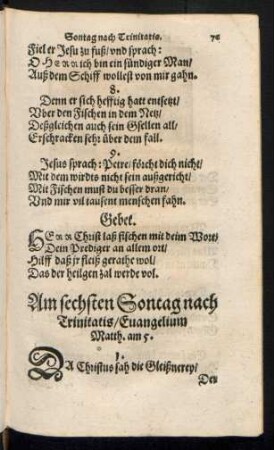 Sontag nach Trinitatis.
Fiel er Jesu zu fuß/ vnd sprach:
O HErr ich bin ein sündiger Man/
Auß dem Schiff wollest von mir gahn.
8.
Denn er sich hefftig hatt entsetzt/
Vber den Fischen in dem Netz/
Deßgleichen auch sein Gsellen all/
Erschracken sehr über dem fall.
9.
Jesus sprach: Petre/ förcht dich nicht/
Mit dem wirdts nicht sein außgericht/
Mit Fischen must du besser dran/
Vnd mir vil tausent menschen fahn.
Gebet.
HErr Christ laß fischen mit deim Wort/
Dein Prediger an allem ort/
Hilff daß jr fleiß gerathe wol/
Das der heilgen zal werde vol.
Am sechsten Sontag nach
Trinitatis/ Euangelium
Matth. am 5.
1.
DA Christus sah die Gleißnerey/
Den